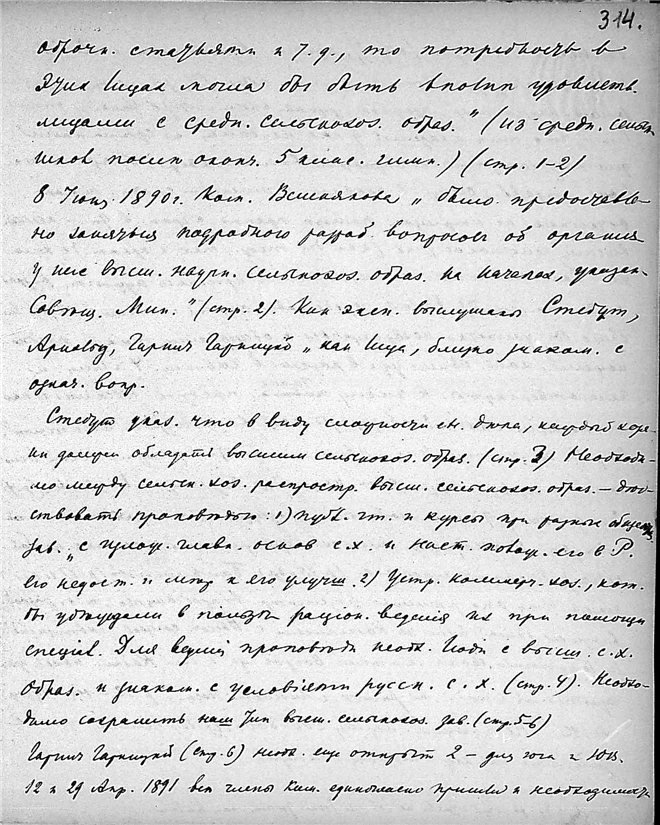 314.
оброчн. статьями и т.д., то потребность в
этих лицах могла бы быть вполне удовлетв.
лицами с средн. сельскохоз. образ." (из средн. сельск.
школ после оконч. 5 клас. гимн.) (стр. 1-2)
8 Июня 1890г. Ком. Вешнякова "было предоставле-
но заняться подробного разраб вопросов об организ
у нас высш. научн. сельскохоз. образ. на началах, указан.
Совещ. Мин." (стр. 2). Как эксп. выслушаны Стебут,
Арнольд, Гарнич Гарницкiй "как лица, близко знаком. с
означ. вопр.
Стебут указ. что в виду сложности ея. дела, каждый хозя-
ин должен обладать высшим сельскохоз. образ. (стр. 3) Необходи-
мо между сельск. хоз. распростр. высш. сельскохоз. образ. — дей-
ствовать проповѣдью: 1) публ. чт. и курсы при разных
зав. "с излож. главн. основ с.х. и наст. полож. его в Р.
его недост. и мер к его улучш. 2) Устр. коммерч. хоз., кот.
бы убеждали в пользе рацiон. веденiя их при помощи
спецiал. Для веденiя проповеди необх. люди с высш. с.х.
образ. и знаком. с условiями русск. с.х. (стр. 4). Необхо-
димо сохранить наш тип высш. сельскохоз. зав. (стр. 5-6)
Гарнич Гарницкiй (стр. 6) необх. еще открыть 2 — для юга и
12 и 29 Апр. 1891 все члены Ком. единогласно пришли к необходимости